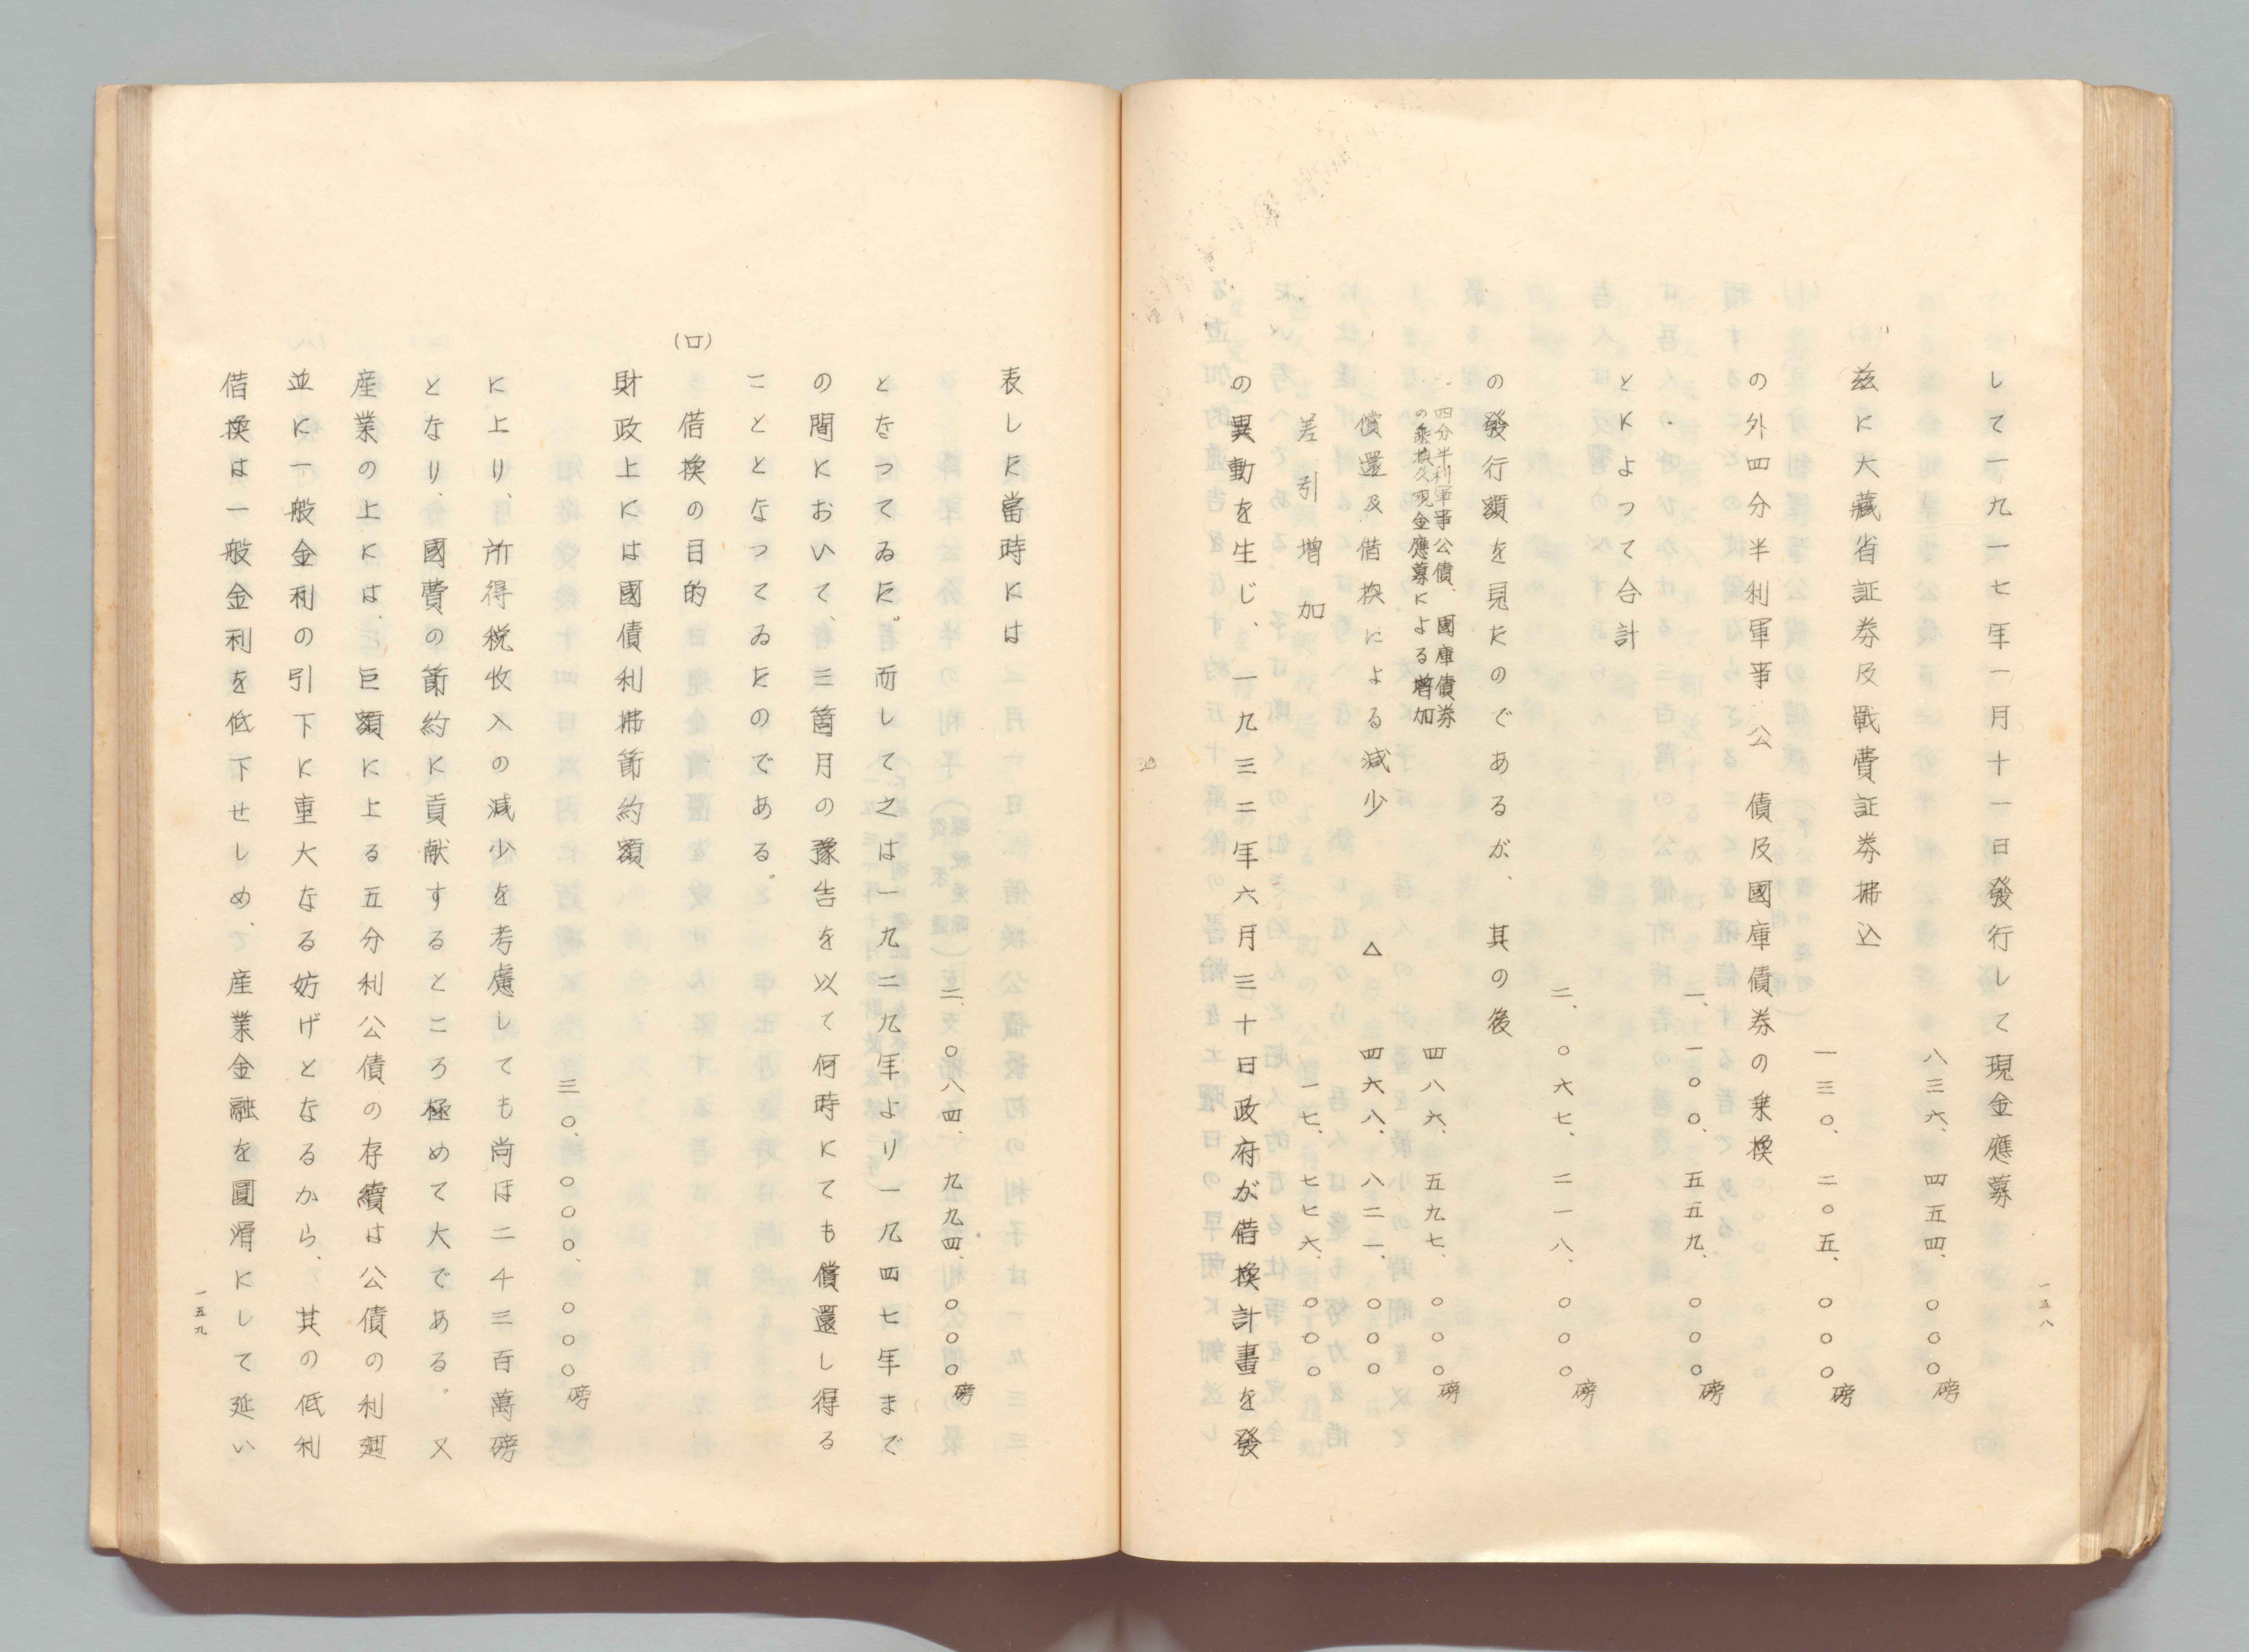 一五八
して一九一七年一月十一日發行して現金應募
八三六、四五四、〇〇〇磅
茲に大藏省証券及戰費証券拂込
一三〇、二〇五、〇〇〇磅
の外四分半利軍事公債及國庫債券の乗換
一、一〇〇、五五九、〇〇〇磅
とによつて合計
二、〇六七、二一八、〇〇〇磅
の發行額を見たのであるが、其の後
四分半利軍事公債、國庫債券
の乗換及現金應募による増加
四八六、五九七、〇〇〇磅
償還及借換による減少 △ 四六八、八二一、〇〇〇
差引増加 一七、七七六、〇〇〇
の異動を生じ、一九三二年六月三十日政府が借換計畫を發
表した當時には
二、〇八四、九九四、〇〇〇磅
となつてゐた。而して之は一九二九年より一九四七年まで
の間において、三箇月の豫告を以て何時にても償還し得る
こととなつてゐたのである。
(ロ) 借換の目的
財政上には國債利拂節約額
三〇、〇〇〇、〇〇〇磅
に上り、所得税收入の減少を考慮しても尚ほ二千三百萬磅
となり、國費の節約に貢献するところ極めて大である。又
産業の上には、巨額に上る五分利公債の存續は公債の利廻
並に一般金利の引下に重大なる妨げとなるから、其の低利
借換は一般金利を低下せしめ、産業金融を圓滑にして延い
一五九